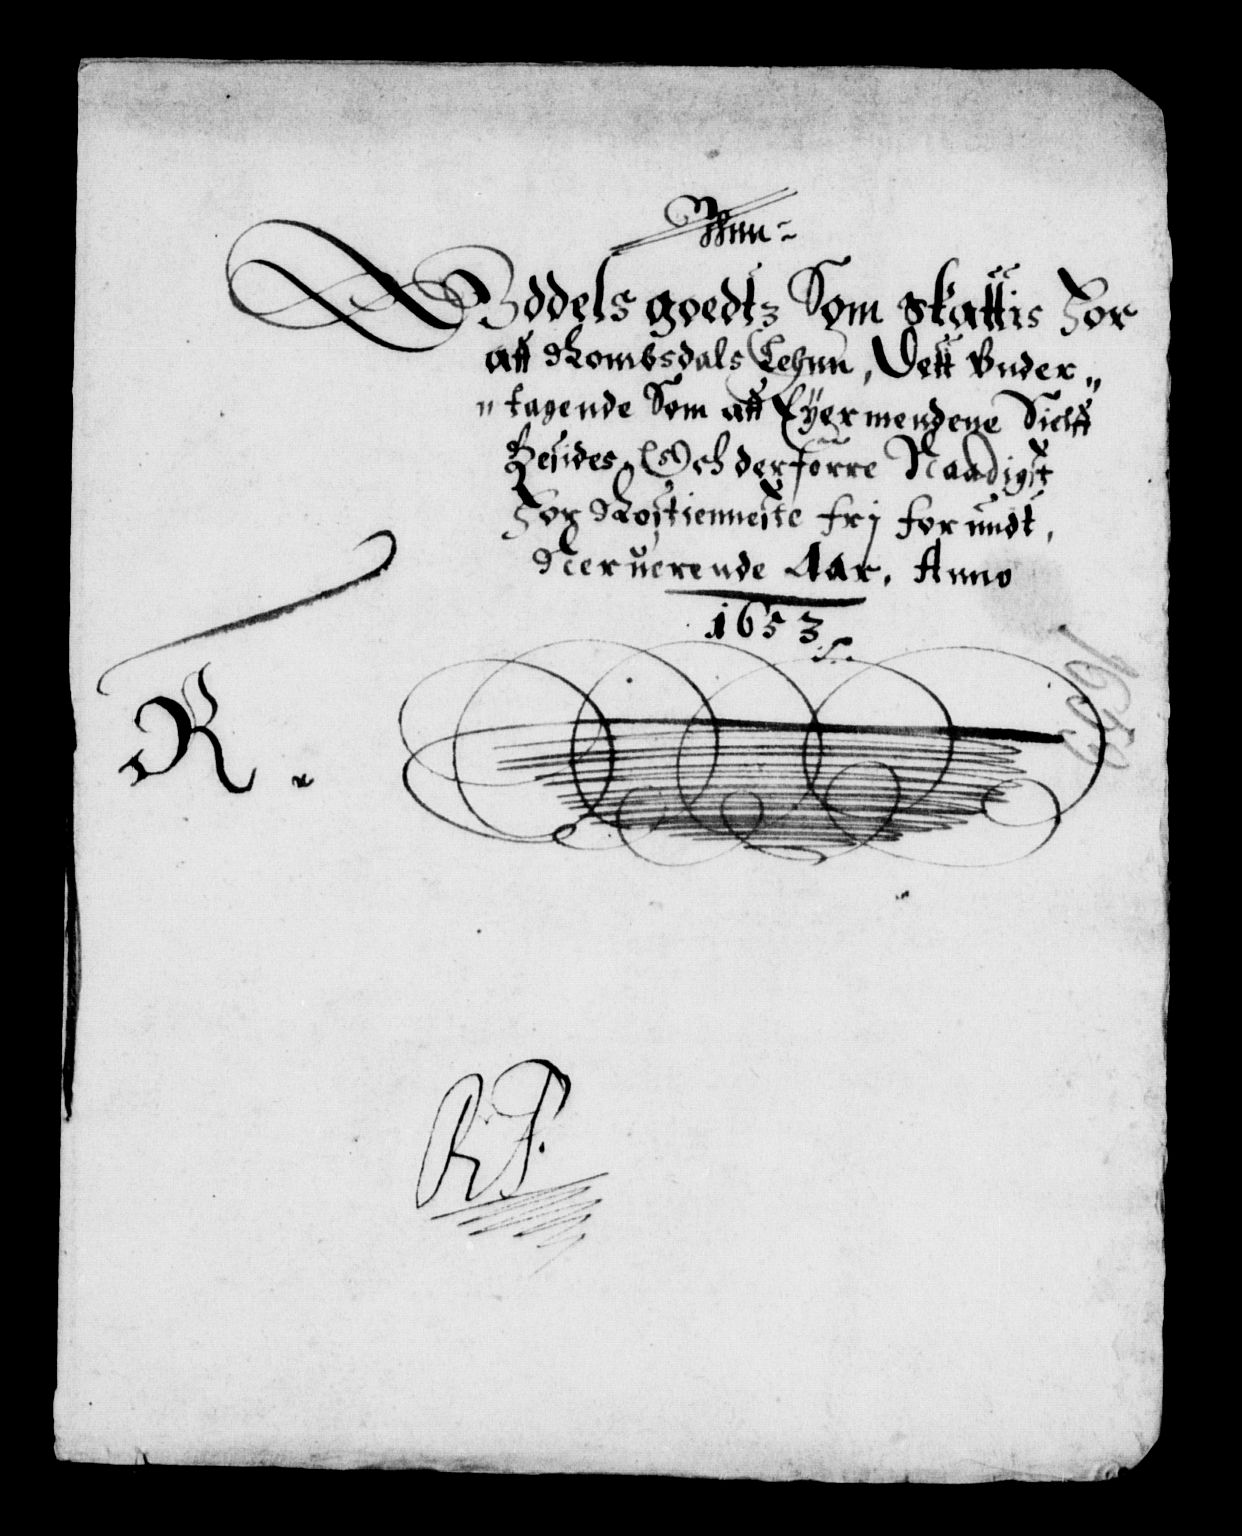 Oddels goedtz Som skattis For
aff Rombsdals Lehnn, Dett Under„
„tagende Som aff Eyermendene Sielff
Besides, Och derforre Naadigst
For Rostienneste frj forundt,
Neruerende Aar. Anno
1653
R.
RP.